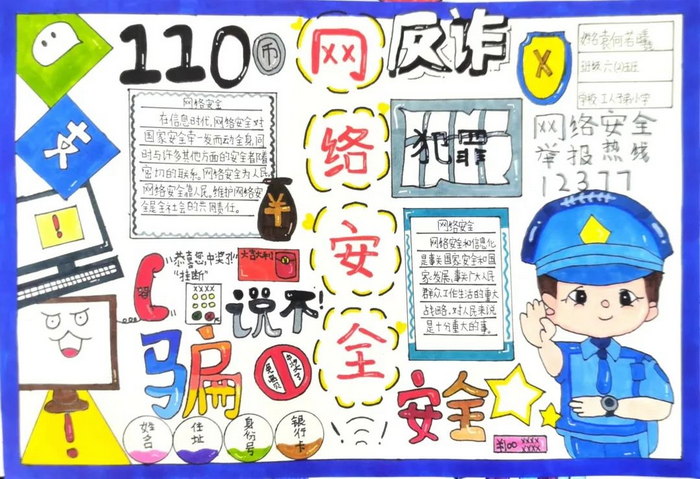 110
币
反诈
网
络
安
全
姓名
班级
学校
网络安全
在信息时代,网络安全对
国家安全牵一发而动全身,同
时与许多其他方面的安全都有着
密切的联系。网络安全为人民,
网络安全靠人民。维护网络安
全是全社会的共同责任。
¥
犯罪
xx网络安全
举报热线
12377
友
!
网络安全
网络安全和信息化
是事关国家安全和国
家发展、事关广大人民
群众工作生活的重大
战略,对人民来说
是十分重大的事。
"恭喜您中奖了!"
"挂断"
大吉大利
xxxx
说不!
骗
免费
安全
!
姓名
住址
身份号
银行卡
¥100 xxxx
xxxx